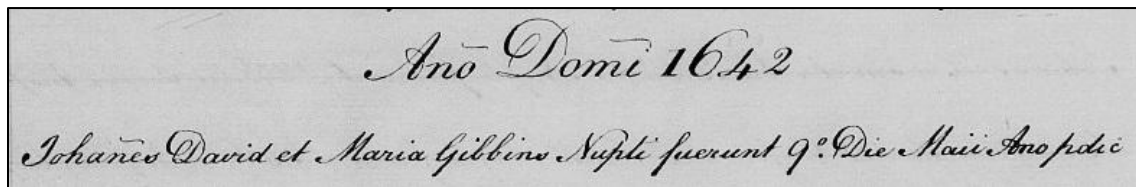 Anō Domī 1642
Johanēs David et Maria Gibbins Nupti fuerunt 9º. Die Maii Ano pdic